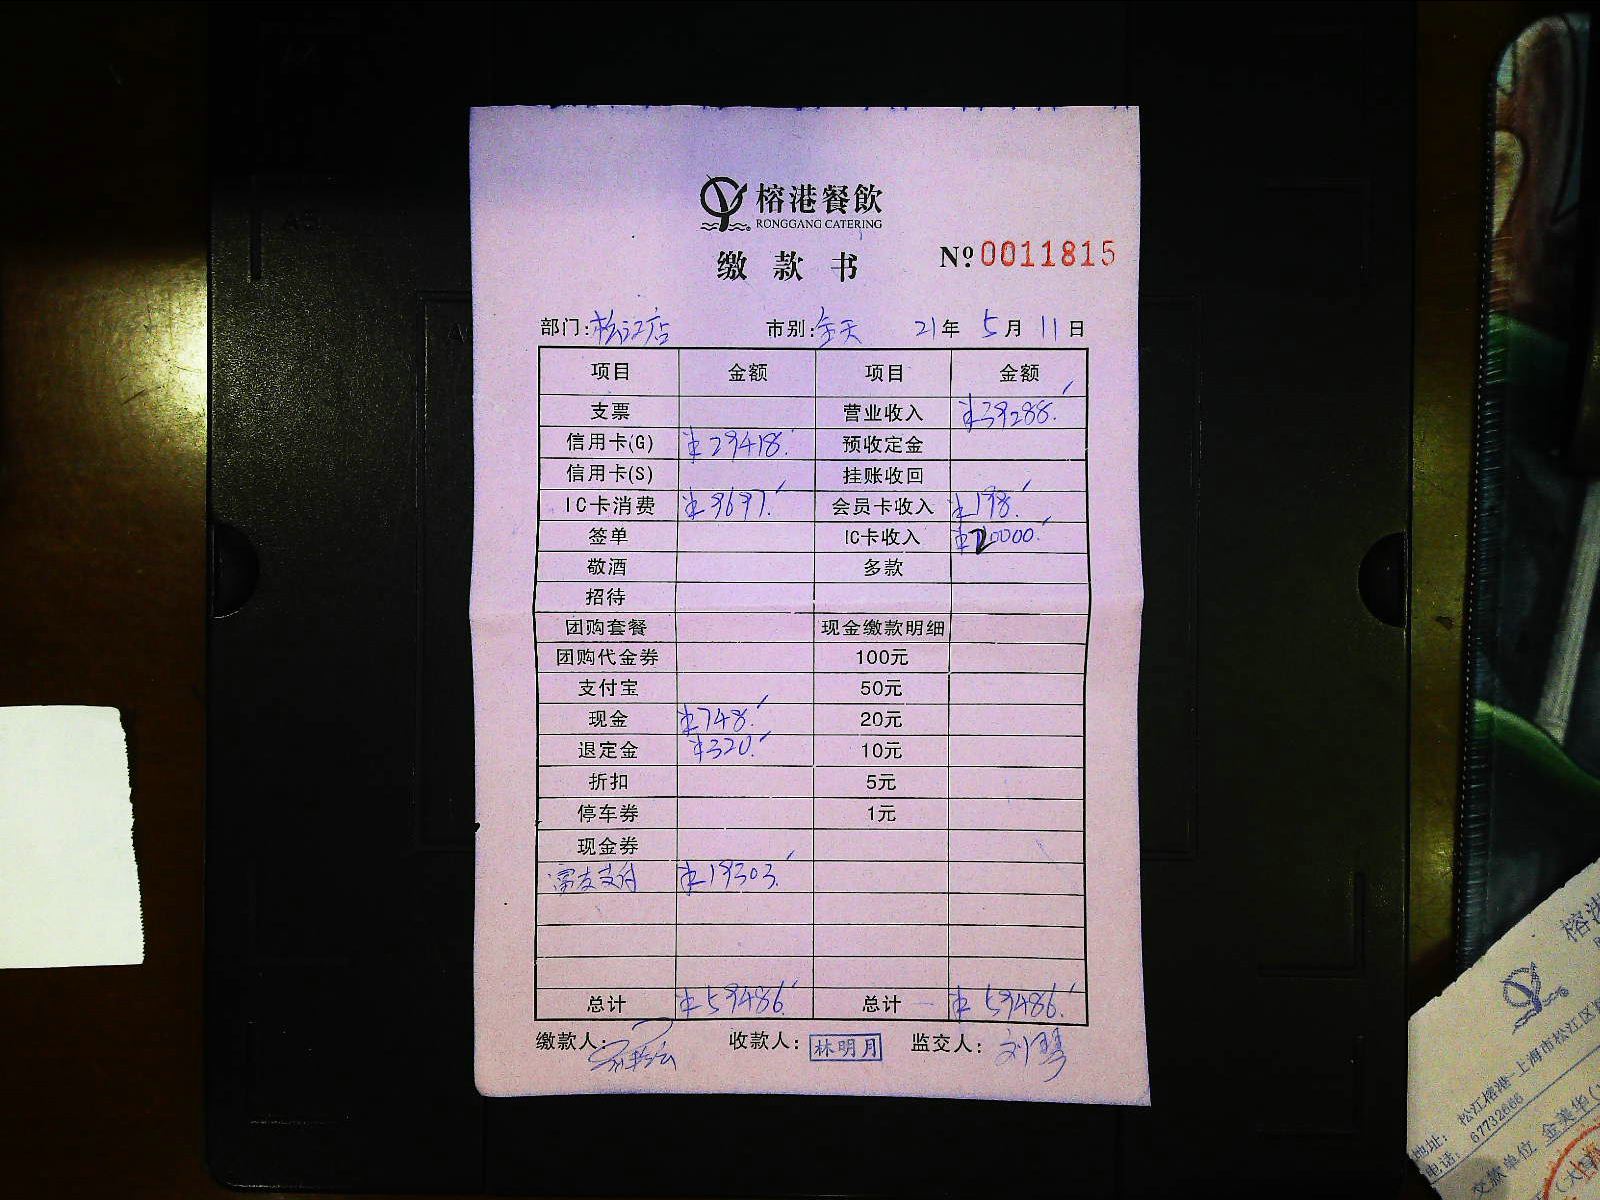 榕港餐飲
RONGGANG CATERING
缴款书
№ 0011815
部门:松江店 市别:全天 21年 5月 11日
项目 金额 项目 金额
支票 营业收入 ¥39288.
信用卡(G) ¥29418. 预收定金
信用卡(S) 挂账收回
IC卡消费 ¥9697. 会员卡收入 ¥198.
签单 IC卡收入 ¥20000.
敬酒 多款
招待
团购套餐 现金缴款明细
团购代金券 100元
支付宝 50元
现金 ¥748. 20元
退定金 ¥320. 10元
折扣 5元
停车券 1元
现金券
富友支付 ¥19303.
总计 ¥59486. 总计 ¥59486.
缴款人: 收款人: 林明月 监交人: 刘琴
榕港
地址: 松江榕港-上海市松江区
电话: 67732666
交款单位 金美华